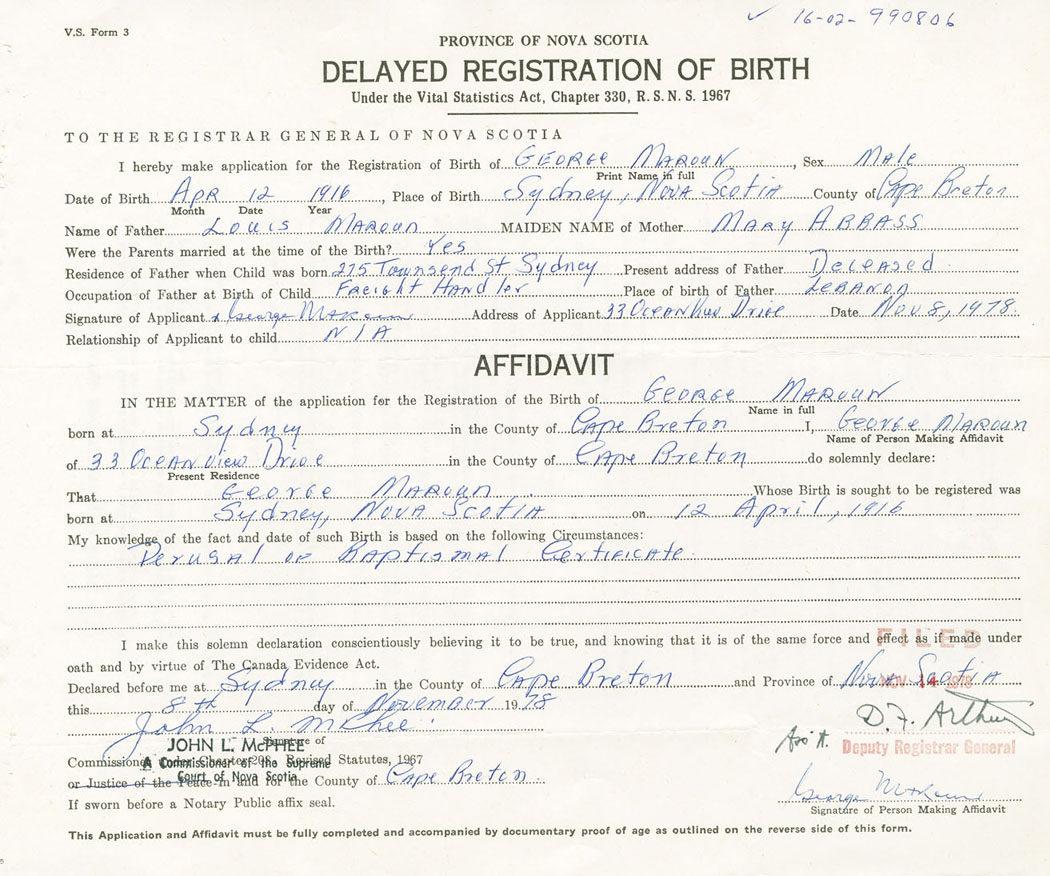 V.S. Form 3
✓ 16-02-990806
PROVINCE OF NOVA SCOTIA
DELAYED REGISTRATION OF BIRTH
Under the Vital Statistics Act, Chapter 330, R.S.N.S. 1967
TO THE REGISTRAR GENERAL OF NOVA SCOTIA
I hereby make application for the Registration of Birth of GEORGE MAROUN, Sex Male
Print Name in full
Date of Birth APR 12 1916, Place of Birth Sydney, NOVA SCOTIA County of Cape Breton
Month Date Year
Name of Father Louis MAROUN MAIDEN NAME of Mother MARY ABBASS
Were the Parents married at the time of the Birth? Yes
Residence of Father when Child was born 275 Townsend St Sydney Present address of Father DECEASED
Occupation of Father at Birth of Child FREIGHT HANDLER Place of birth of Father LEBANON
Signature of Applicant x George Maroun Address of Applicant 33 OCEAN View Drive Date Nov 8, 1978.
Relationship of Applicant to child N/A
AFFIDAVIT
IN THE MATTER of the application for the Registration of the Birth of GEORGE MAROUN
Name in full
born at Sydney in the County of Cape Breton I, GEORGE MAROUN
Name of Person Making Affidavit
of 33 OCEAN View Drive in the County of Cape Breton do solemnly declare:
Present Residence
That GEORGE MAROUN Whose Birth is sought to be registered was
born at Sydney, NOVA SCOTIA on 12 April, 1916
My knowledge of the fact and date of such Birth is based on the following Circumstances:
Perusal of Baptismal Certificate.
I make this solemn declaration conscientiously believing it to be true, and knowing that it is of the same force and effect as if made under
FILED
oath and by virtue of The Canada Evidence Act.
Declared before me at Sydney in the County of Cape Breton and Province of Nova Scotia
NOV 14 1978
this 8th day of November 1978
John L. McPhee
D.F. Arthur
Signature of
JOHN L. McPHEE
Ass't. Deputy Registrar General
Commissioner under Chapter 208, Revised Statutes, 1967
A Commissioner of the Supreme
or Justice of the Peace in and for the County of Cape Breton.
Court of Nova Scotia
George Maroun
If sworn before a Notary Public affix seal.
Signature of Person Making Affidavit
This Application and Affidavit must be fully completed and accompanied by documentary proof of age as outlined on the reverse side of this form.